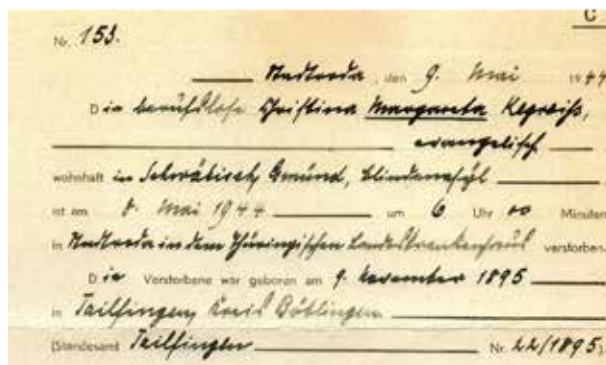 C
Nr. 153.
Stadtroda, den 9. Mai 1944
Die berufslose Christina Margareta
evangelisch
wohnhaft in Schwäbisch Gmünd, Blindenasyl
ist am 8. Mai 1944 um 6 Uhr 00 Minuten
in Stadtroda in dem Thüringischen Landeskrankenhaus verstorben.
Die Verstorbene war geboren am 9. November 1895
in Tailfingen, Kreis Böblingen
(Standesamt Tailfingen Nr. 22/1895)